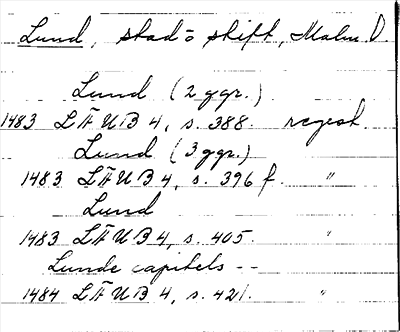 Lund, stad o skift, Malm.
Lund (2 ggr.)
1483 LÄUB 4, s. 388. regest.
Lund (3 ggr.)
1483 LÄUB 4, s. 396 f. "
Lund
1483 LÄUB 4, s. 405. "
Lunde capitels --
1484 LÄUB 4, s. 421. "